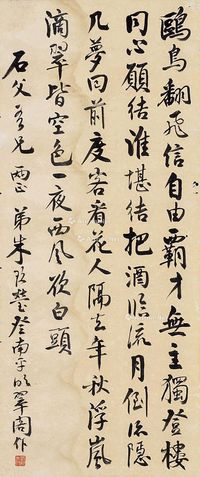 鷗鳥翻飛信自由霸才無主獨登樓
同心願結誰堪結把酒臨流月倒流隱
几夢回前度客看花人隔去年秋浮嵐
滴翠皆空色一夜西風欲白頭
石父吾兄兩正 弟朱玖瑩登南平明翠閣作